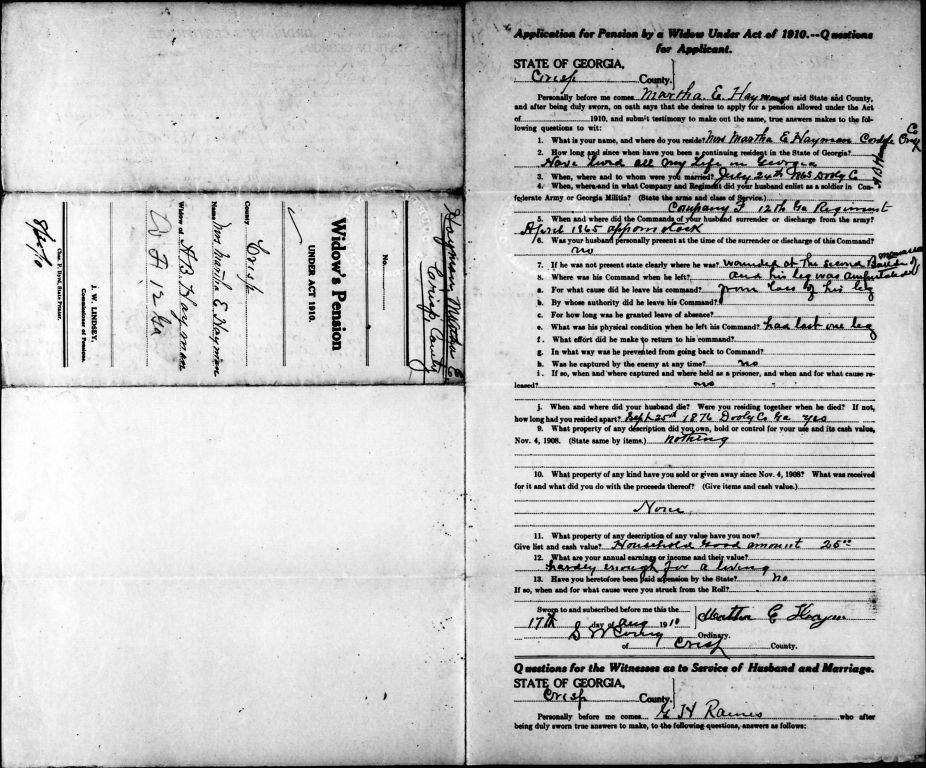 Hayman Martha E.
Crisp County
No.
Widow's Pension
UNDER ACT 1910.
County Crisp
Name Mrs Martha E. Hayman
Widow of H.B. Hayman
Co F 12 Ga
J. W. LINDSEY,
Commissioner of Pensions.
Chas. P. Byrd, State Printer.
Application for Pension by a Widow Under Act of 1910.--Questions
for Applicant.
STATE OF GEORGIA,
Crisp County.
Personally before me comes Martha E. Hayman of said State and County,
and after being duly sworn, on oath says that she desires to apply for a pension allowed under the Act
of 1910, and submit testimony to make out the same, true answers makes to the fol-
lowing questions to wit:
1. What is your name, and where do you reside? Mrs Martha E Hayman Cordele Crisp Co
2. How long and since when have you been a continuing resident in the State of Georgia?
Have lived all my Life in Georgia
3. When, where and to whom were you married? July 24th 1863 Dooly C
4. When, where and in what Company and Regiment did your husband enlist as a soldier in Con-
federate Army or Georgia Militia? (State the arms and class of Service.)
Company F 12th Ga Regiment
5. When and where did the Commands of your husband surrender or discharge from the army?
April 1865 appomatock
6. Was your husband personally present at the time of the surrender or discharge of this Command?
no
7. If he was not present state clearly where he was? wounded at The Second Battle of manassa
8. Where was his Command when he left? and his leg was amputated
a. For what cause did he leave his command? from loss of his leg
b. By whose authority did he leave his Command?
c. For how long was he granted leave of absence?
e. What was his physical condition when he left his Command? had lost one leg
f. What effort did he make to return to his command?
g. In what way was he prevented from going back to Command?
h. Was he captured by the enemy at any time? no
i. If so, when and where captured and where held as a prisoner, and when and for what cause re-
leased? no
j. When and where did your husband die? Were you residing together when he died? If not,
how long had you resided apart? Sept 25th 1876 Dooly Co Ga yes
9. What property of any description did you own, hold or control for your use and its cash value,
Nov. 4, 1908. (State same by items.) nothing
10. What property of any kind have you sold or given away since Nov. 4, 1908? What was received
for it and what did you do with the proceeds thereof? (Give items and cash value.)
None
11. What property of any description of any value have you now?
Give list and cash value? Household good amount 25 00
12. What are your annual earnings or income and their value?
hardly enough for a living
13. Have you heretofore been paid a pension by the State? no
If so, when and for what cause were you struck from the Roll?
Sworn to and subscribed before me this the
17th day of Aug 1910
Martha E Hayman
Ordinary.
of Crisp County.
Questions for the Witnesses as to Service of Husband and Marriage.
STATE OF GEORGIA,
Crisp County.
Personally before me comes G H Raines who after
being duly sworn true answers to make, to the following questions, answers as follows: